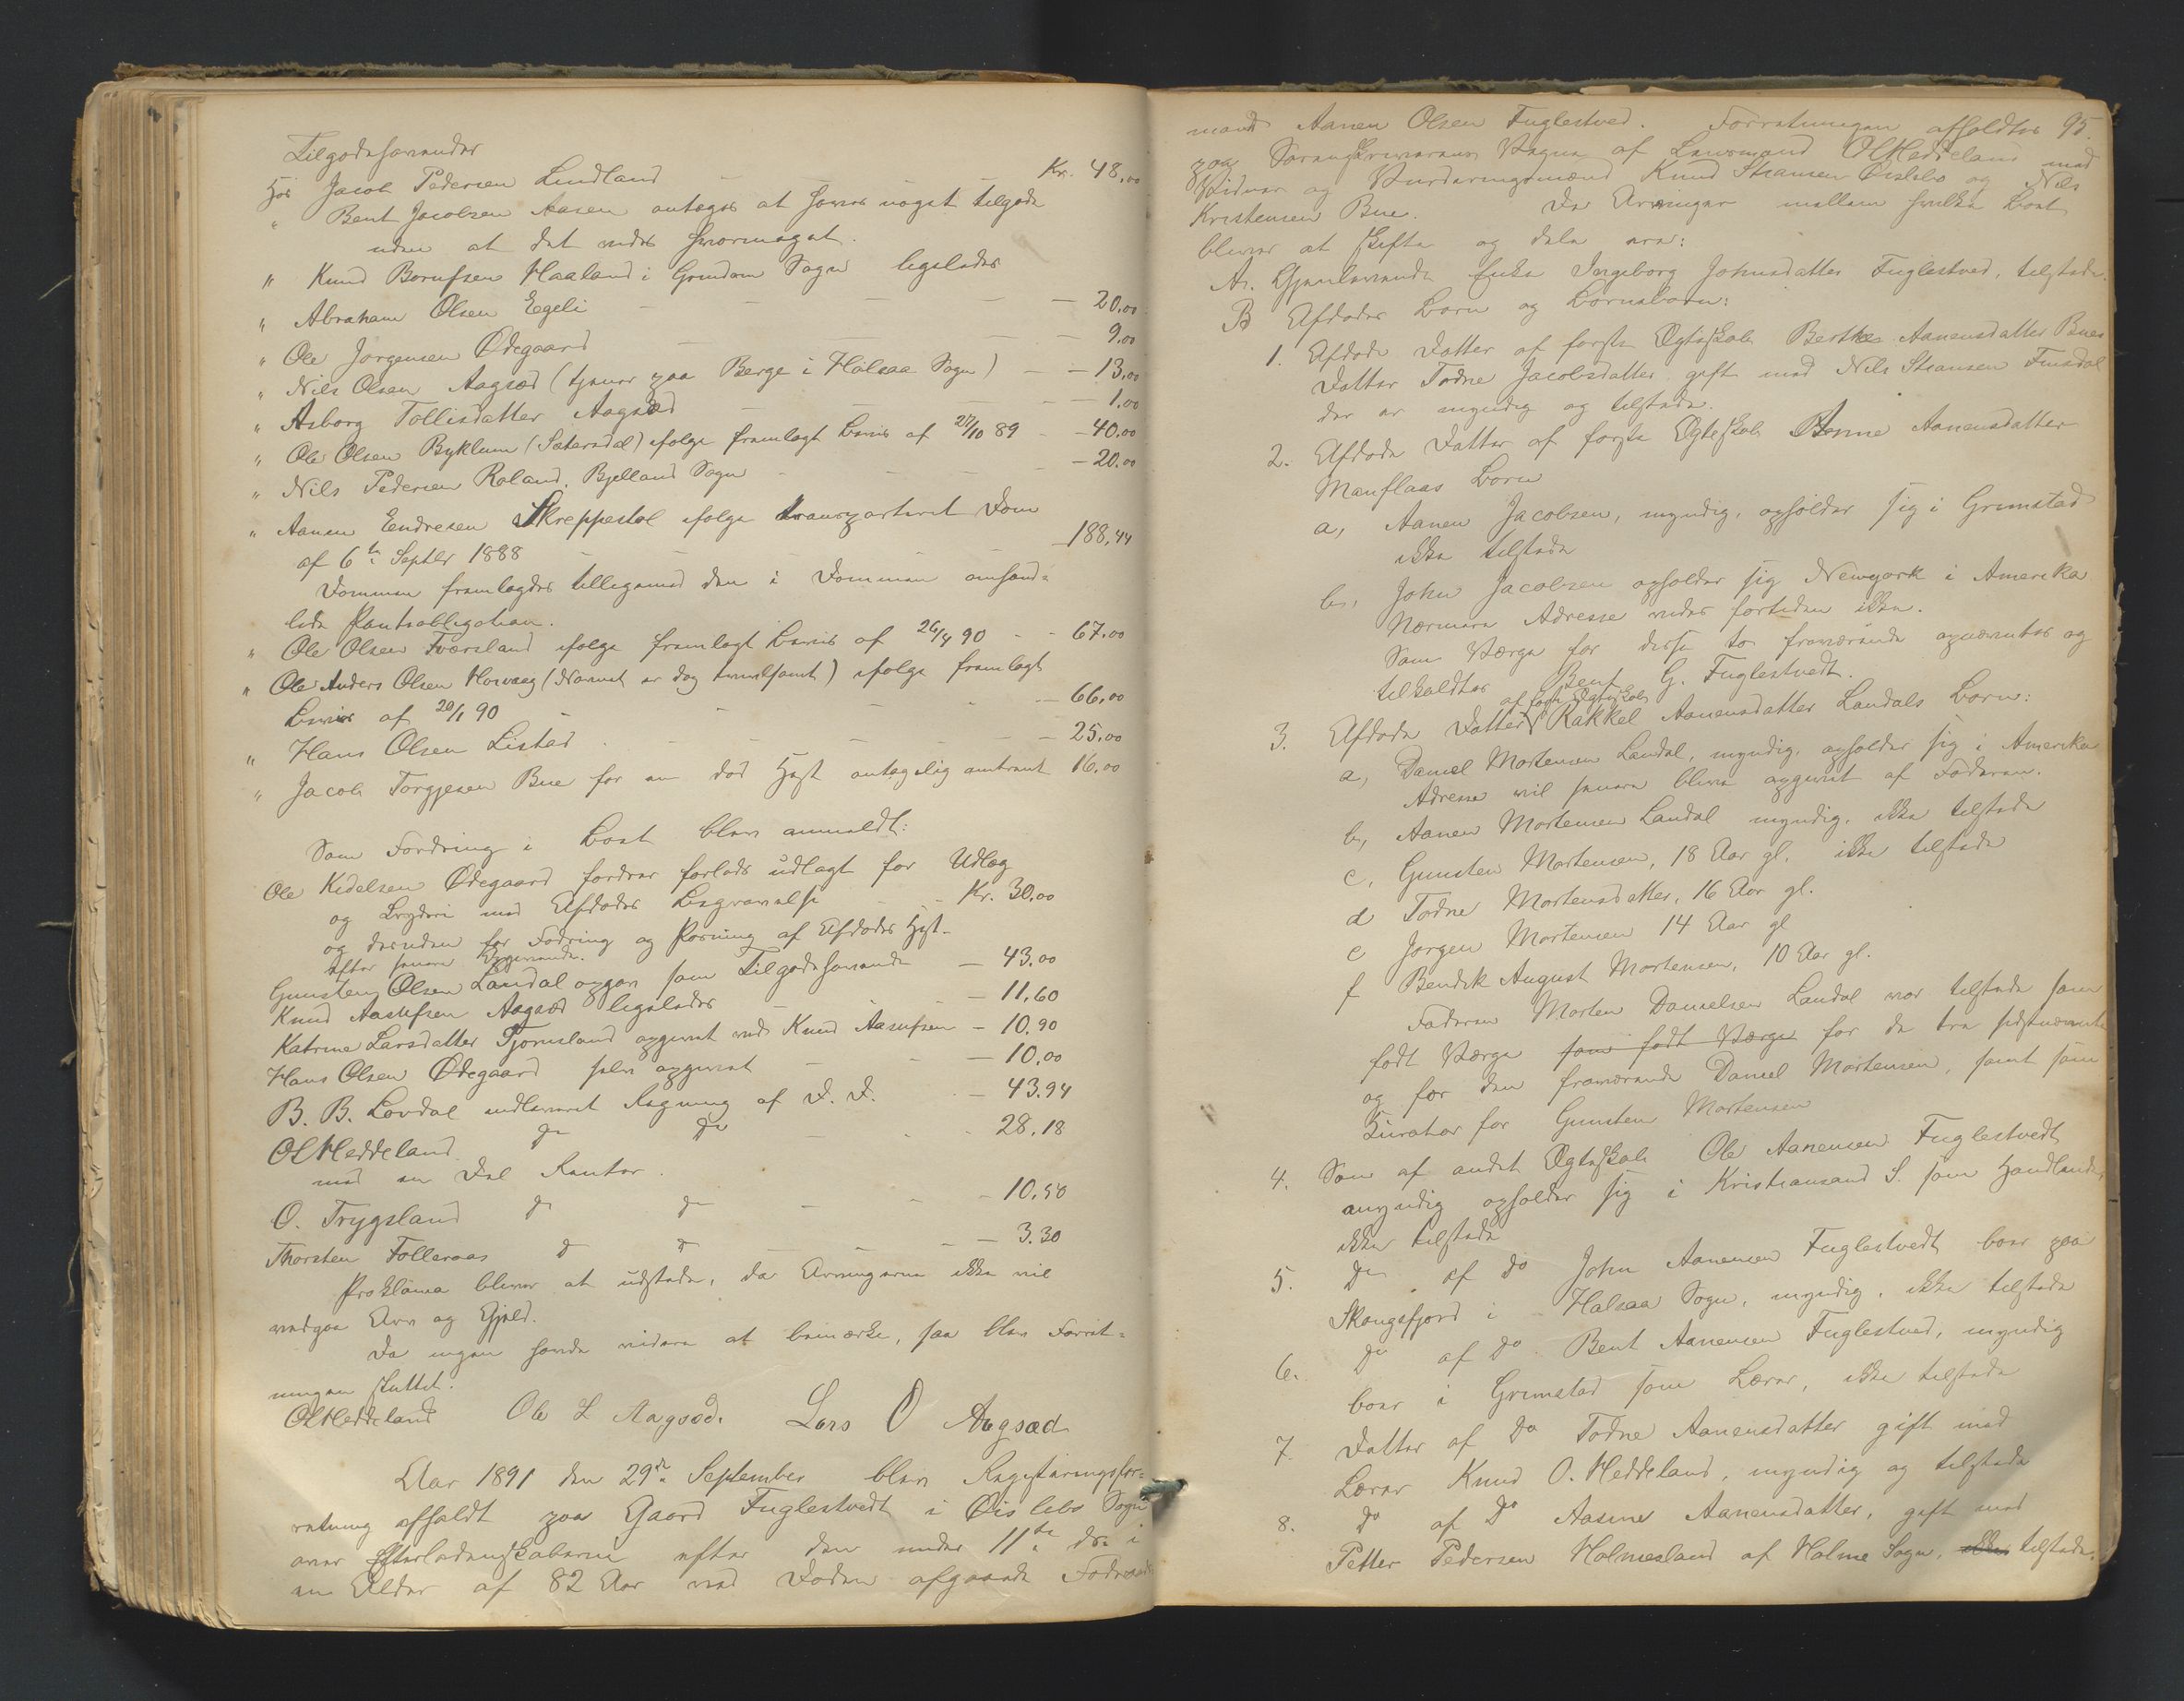 Tilgodehavender
Hos Jacob Pedersen Lindland — — — Kr. 48,00
" Bent Jacobsen Aasen antages at haves noget tilgode
uden at det vides hvormeget.
" Knud Borufsen Haaland i Grindum Sogn ligeledes
" Abraham Olsen Egeli — — — — 20,00
" Ole Jørgensen Ødegaard — — — — 9,00
" Nils Olsen Aagsæd (tjener paa Berge i Halsaa Sogn) — — 13,00
" Asborg Tollisdatter Aagsæd — — — — 1,00
" Ole Olsen Byklum (Sætersdal) ifølge fremlagt Bevis af 27/10 89 — 40,00
" Nils Pedersen Roland, Bjelland Sogn — — — 20,00
" Aanen Endresen Skreppestøl ifølge transporteret Dom
af 6te Septbr 1888 — — — — 188,44
Dommen fremlagdes tilligemed den i Dommen omhand=
lede Pantobligation.
" Ole Olsen Tværsland ifølge fremlagt Bevis af 26/4 90 - - 67,00
" Ole Anders Olsen Horvaag (Navnet er dog tvivlsomt) ifølge fremlagt
Bevis af 20/1 90 — — — — 66,00
" Hans Olsen Listad — — — — 25,00
" Jacob Torgjesen Bue for en død Hest antagelig omtrent 16,00
Som Fordring i Boet blev anmeldt:
Ole Kedelsen Ødegaard fordrer forlods udlagt for Udlæg
og Bryderi med Afdødes Begravelse — — Kr. 30,00
og desuden for Fodring og Pasning af Afdødes Hest
efter senere Opgivende.
Gunsten Olsen Landal opgav som Tilgodehavende — 43,00
Knud Aasulfsen Aagsæd ligeledes — — — 11,60
Katrine Larsdatter Tjomsland opgivet ved Knud Aasulfsen — 10,90
Hans Olsen Ødegaard selv opgivet — — — 10,00
B. B. Lovdal indleveret Regning af D. D. — 43,94
OlHeddeland do do — — 28,18
med en Del Renter.
O. Trygsland do do — — — 10,50
Thorsten Folleraas do do — — — 3.30
Proklama bliver at udstede, da Arvingerne ikke vil
vedgaa Arv og Gjæld.
Da ingen havde videre at bemærke, saa blev Forret=
ningen sluttet.
OlHeddeland Ole L Aagsæd. Lars O Aagsæd
Aar 1891 den 29de September blev Registeringsfor=
retning afholdt paa Gaard Fuglestvedt i Øislebø Sogn
over Efterladenskaberne efter den under 11te ds. i
en Alder af 82 Aar ved Døden afgaaede Føderaads
mand Aanen Olsen Fuglestved. Forretningen afholdtes 95.
paa Sorenskriverens Vegne af Lensmand OlHeddeland med
Vidner og Vurderingsmænd Knud Stiansen Øislebø og Nils
Kristensen Bue. De Arvinger mellem hvilke Boet
bliver at skifte og dele var:
A. Gjenlevende Enke Ingeborg Johnsdatter Fuglestved, tilstede.
B Afdødes Børn og Børnebørn:
1. Afdøde Datter af første Ægteskab Berthe Aanensdatter Bues
Datter Todne Jacobsdatter gift med Nils Stiansen Finsdal
der er myndig og tilstede.
2. Afdøde Datter af første Ægteskab Anne Aanensdatter
Manflaas Børn
a, Aanen Jacobsen, myndig, opholder sig i Grimstad
ikke tilstede
b, John Jacobsen opholder sig Newyork i Amerika
Nærmere Adresse vides fortiden ikke.
Som Værge for disse to fraværende opnævntes og
tilkaldtes Bent G. Fuglestvedt.
af første Ægteskab
3. Afdøde Datter Rakkel Aanensdatter Landals Børn:
a, Daniel Mortensen Landal, myndig, opholder sig i Amerika
Adresse vil senere blive opgivet af Faderen.
b, Aanen Mortensen Landal myndig, ikke tilstede
c, Gunsten Mortensen, 18 Aar gl. ikke tilstede
d Todne Mortensdatter, 16 Aar gl.
e Jørgen Mortensen 14 Aar gl
f Bendik August Mortensen, 10 Aar gl.
Faderen Morten Danielsen Landal var tilstede som
født Værge som født Værge for de tre sidstnævnte
og for den fraværende Daniel Mortensen, samt som
Kurator for Gunsten Mortensen
4. Søn af andet Ægteskab Ole Aanensen Fuglestvedt
myndig opholder sig i Kristiansand S. som Handlende,
ikke tilstede
5. Do af Do John Aanensen Fuglestvedt boer paa
Skogsfjord i Halsaa Sogn, myndig, ikke tilstede
6. Do af Do Bent Aanensen Fuglestved, myndig
boer i Grimstad som Lærer, ikke tilstede
7. Datter af Do Todne Aanensdatter gift med
Lærer Knud O. Heddeland, myndig og tilstede
8. Do af Do Aasine Aanensdatter, gift med
Petter Pedersen Holmesland af Holme Sogn, ikke tilstede.